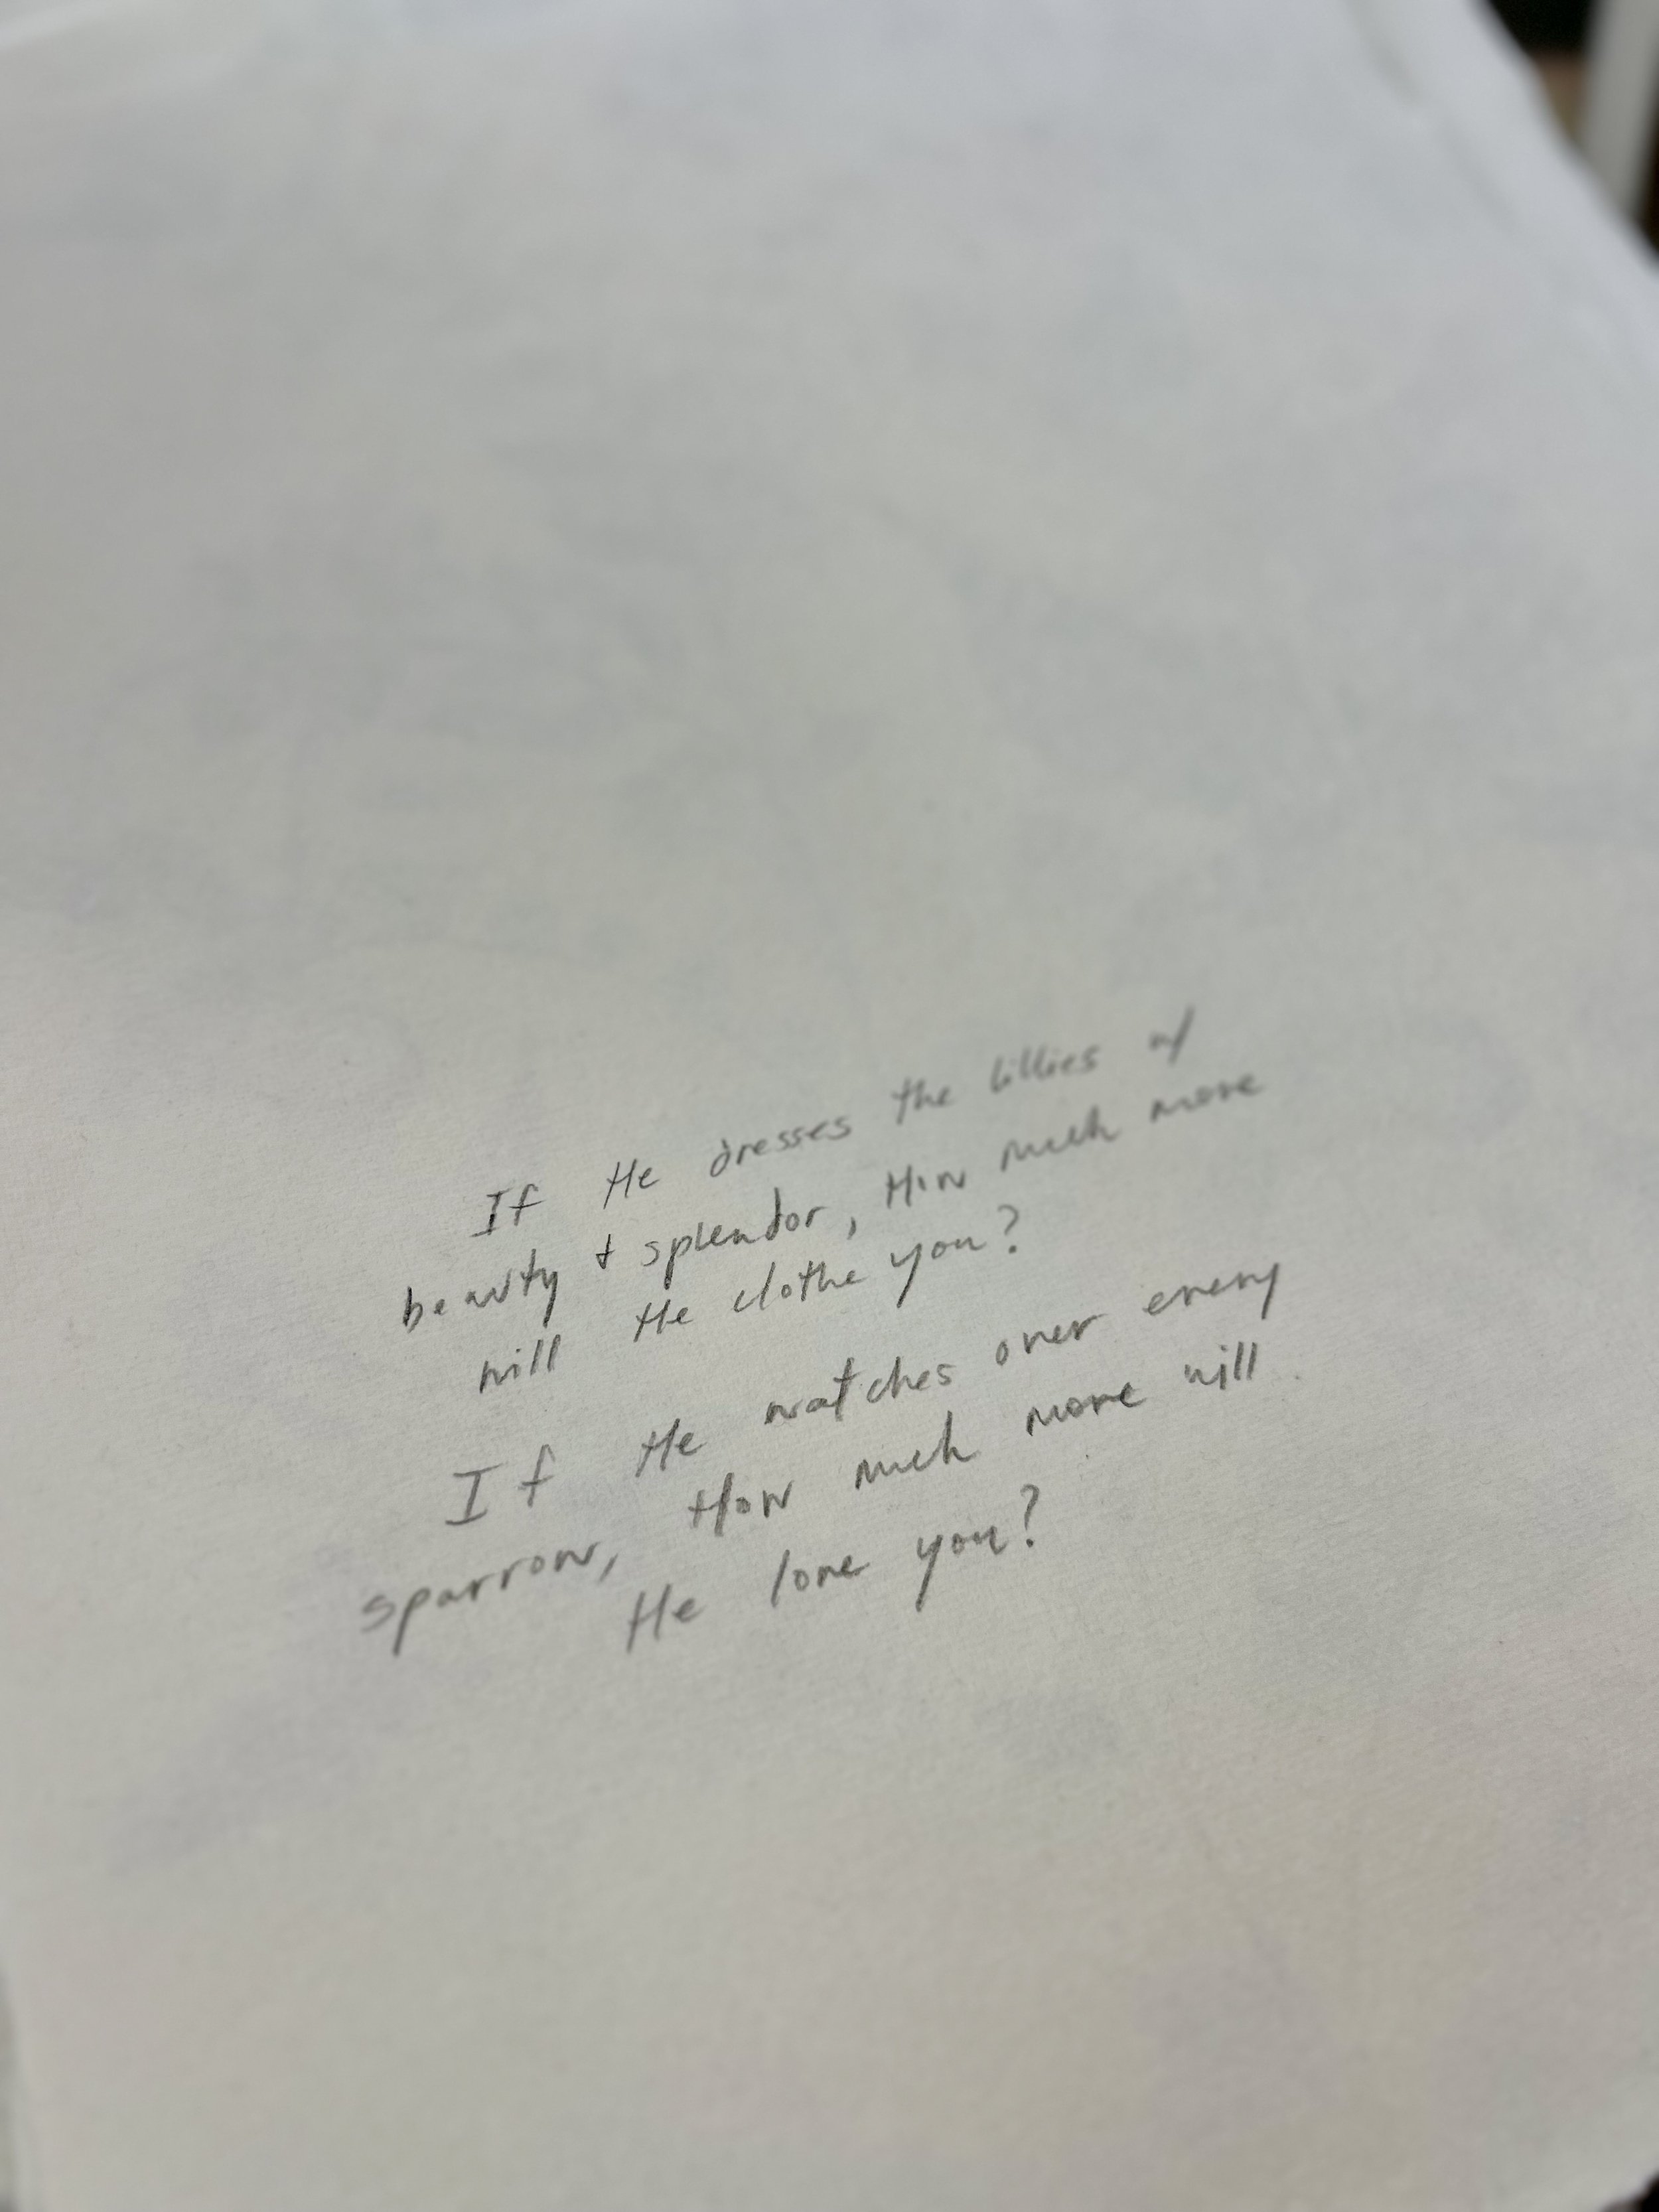 If He dresses the lillies w/
beauty & splendor, How much more
will He clothe you?
If He watches over every
sparrow, How much more will
He love you?